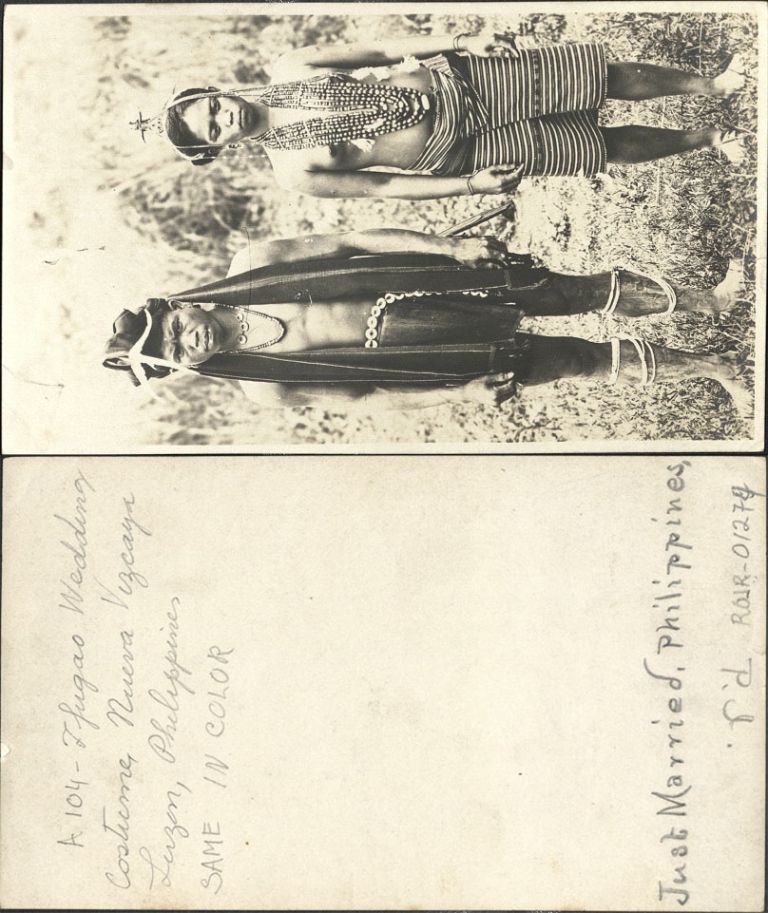 A 104 - Ifugao Wedding
Costume, Nueva Vizcaya
Luzon, Philippines
SAME IN COLOR
Just Married, Philippines,
ROJR-01274